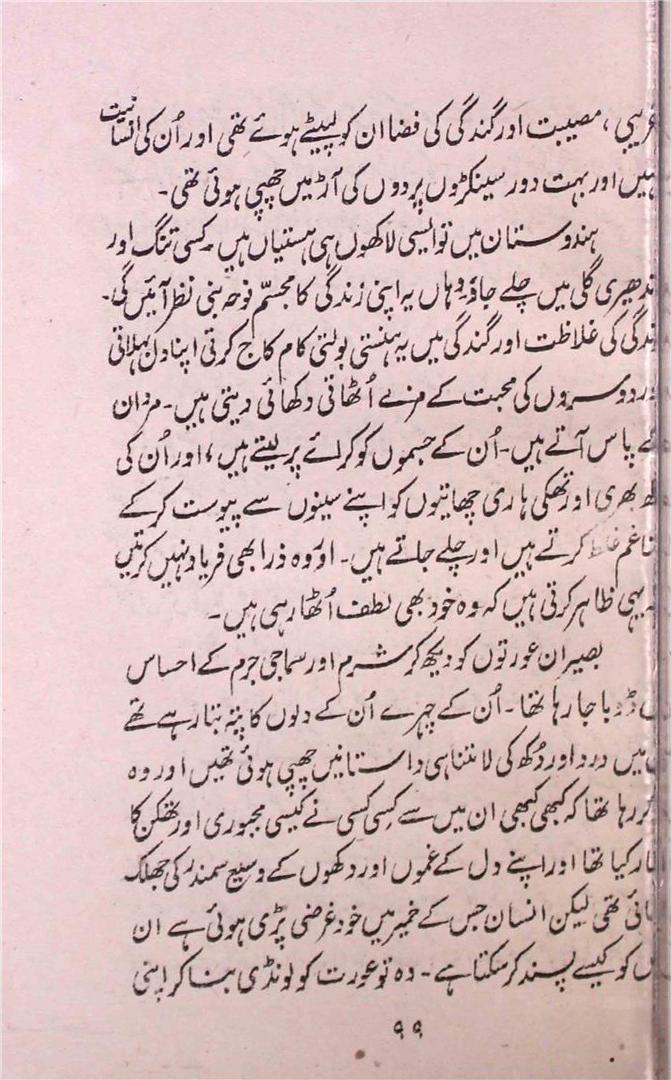 غریبی، مصیبت اور گندگی کی فضا ان کو لپیٹے ہوئے تھی اور اُن کی انسانیت
ہیں اور بہت دور سینکڑوں پردوں کی آڑ میں چھپی ہوئی تھی۔
ہندوستان میں تو ایسی لاکھوں ہی ہستیاں ہیں۔ کسی تنگ اور
ندھیری گلی میں چلے جاؤ وہاں یہ اپنی زندگی کا مجسّم نوحہ بنی نظر آئیں گی۔
ندگی کی غلاظت اور گندگی میں یہ ہنستی بولتی کام کاج کرتی اپنا دل بہلاتی
ور دوسروں کی محبت کے مزے اُٹھاتی دکھائی دیتی ہیں۔ مرد ان
کے پاس آتے ہیں۔ اُن کے جسموں کو کرائے پر لیتے ہیں، اور اُن کی
کھ بھری اور تھکی ہاری چھاتیوں کو اپنے سینوں سے پیوست کر کے
نا غم غلط کرتے ہیں اور چلے جاتے ہیں۔ اور وہ ذرا بھی فریاد نہیں کرتیں
یہی ظاہر کرتی ہیں کہ وہ خود بھی لطف اُٹھا رہی ہیں۔
بصیر ان عورتوں کو دیکھ کر شرم اور سماجی جرم کے احساس
ں ڈوبا جا رہا تھا۔ اُن کے چہرے اُن کے دلوں کا پتہ بتا رہے تھے
میں درد اور دُکھ کی لا متناہی داستانیں چھپی ہوئی تھیں اور وہ
کر رہا تھا کہ کبھی کبھی ان میں سے کسی کسی نے کیسی مجبوری اور تھکن کا
ار کیا تھا اور اپنے دل کے غموں اور دکھوں کے وسیع سمندر کی جھلک
ھائی تھی لیکن انسان جس کے خمیر میں خود غرضی پڑی ہوئی ہے ان
ں کو کیسے پسند کر سکتا ہے۔ وہ تو عورت کو لونڈی بنا کر اپنی
۹۹